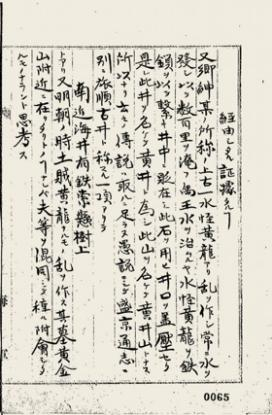 経由シタル証蹟ナシ
又郷紳某ノ所称ニ上古水怪黄龍アリ乱ヲ作シ常ニ水ヲ
発シ以テ数百里ヲ淹フ禹王水ヲ治ムルヤ水怪黄龍ヲ鉄
鎖ヲ以テ繋キ井中ニ取在シ此石ヲ用ヒ井口ヲ蓋圧セリ
是レ此井ヲ名ケテ黄井ト為シ此山ヲ名ケテ黄井山トナス
所以ナリ云々ト傳説取ルニ足ラス愚説ニシテ盛京通志ニ
別ニ旅順古井ト称スル一項アリ
南近海井有鉄索懸樹上
トアリ又明朝ノ時土賊黄龍ナルモノ乱ヲ作ス其墓黄金
山附近ニ在リタリト ナレハ夫等ヲ混同シテ種々附會シタ
ルモノナラント思考ス
0065